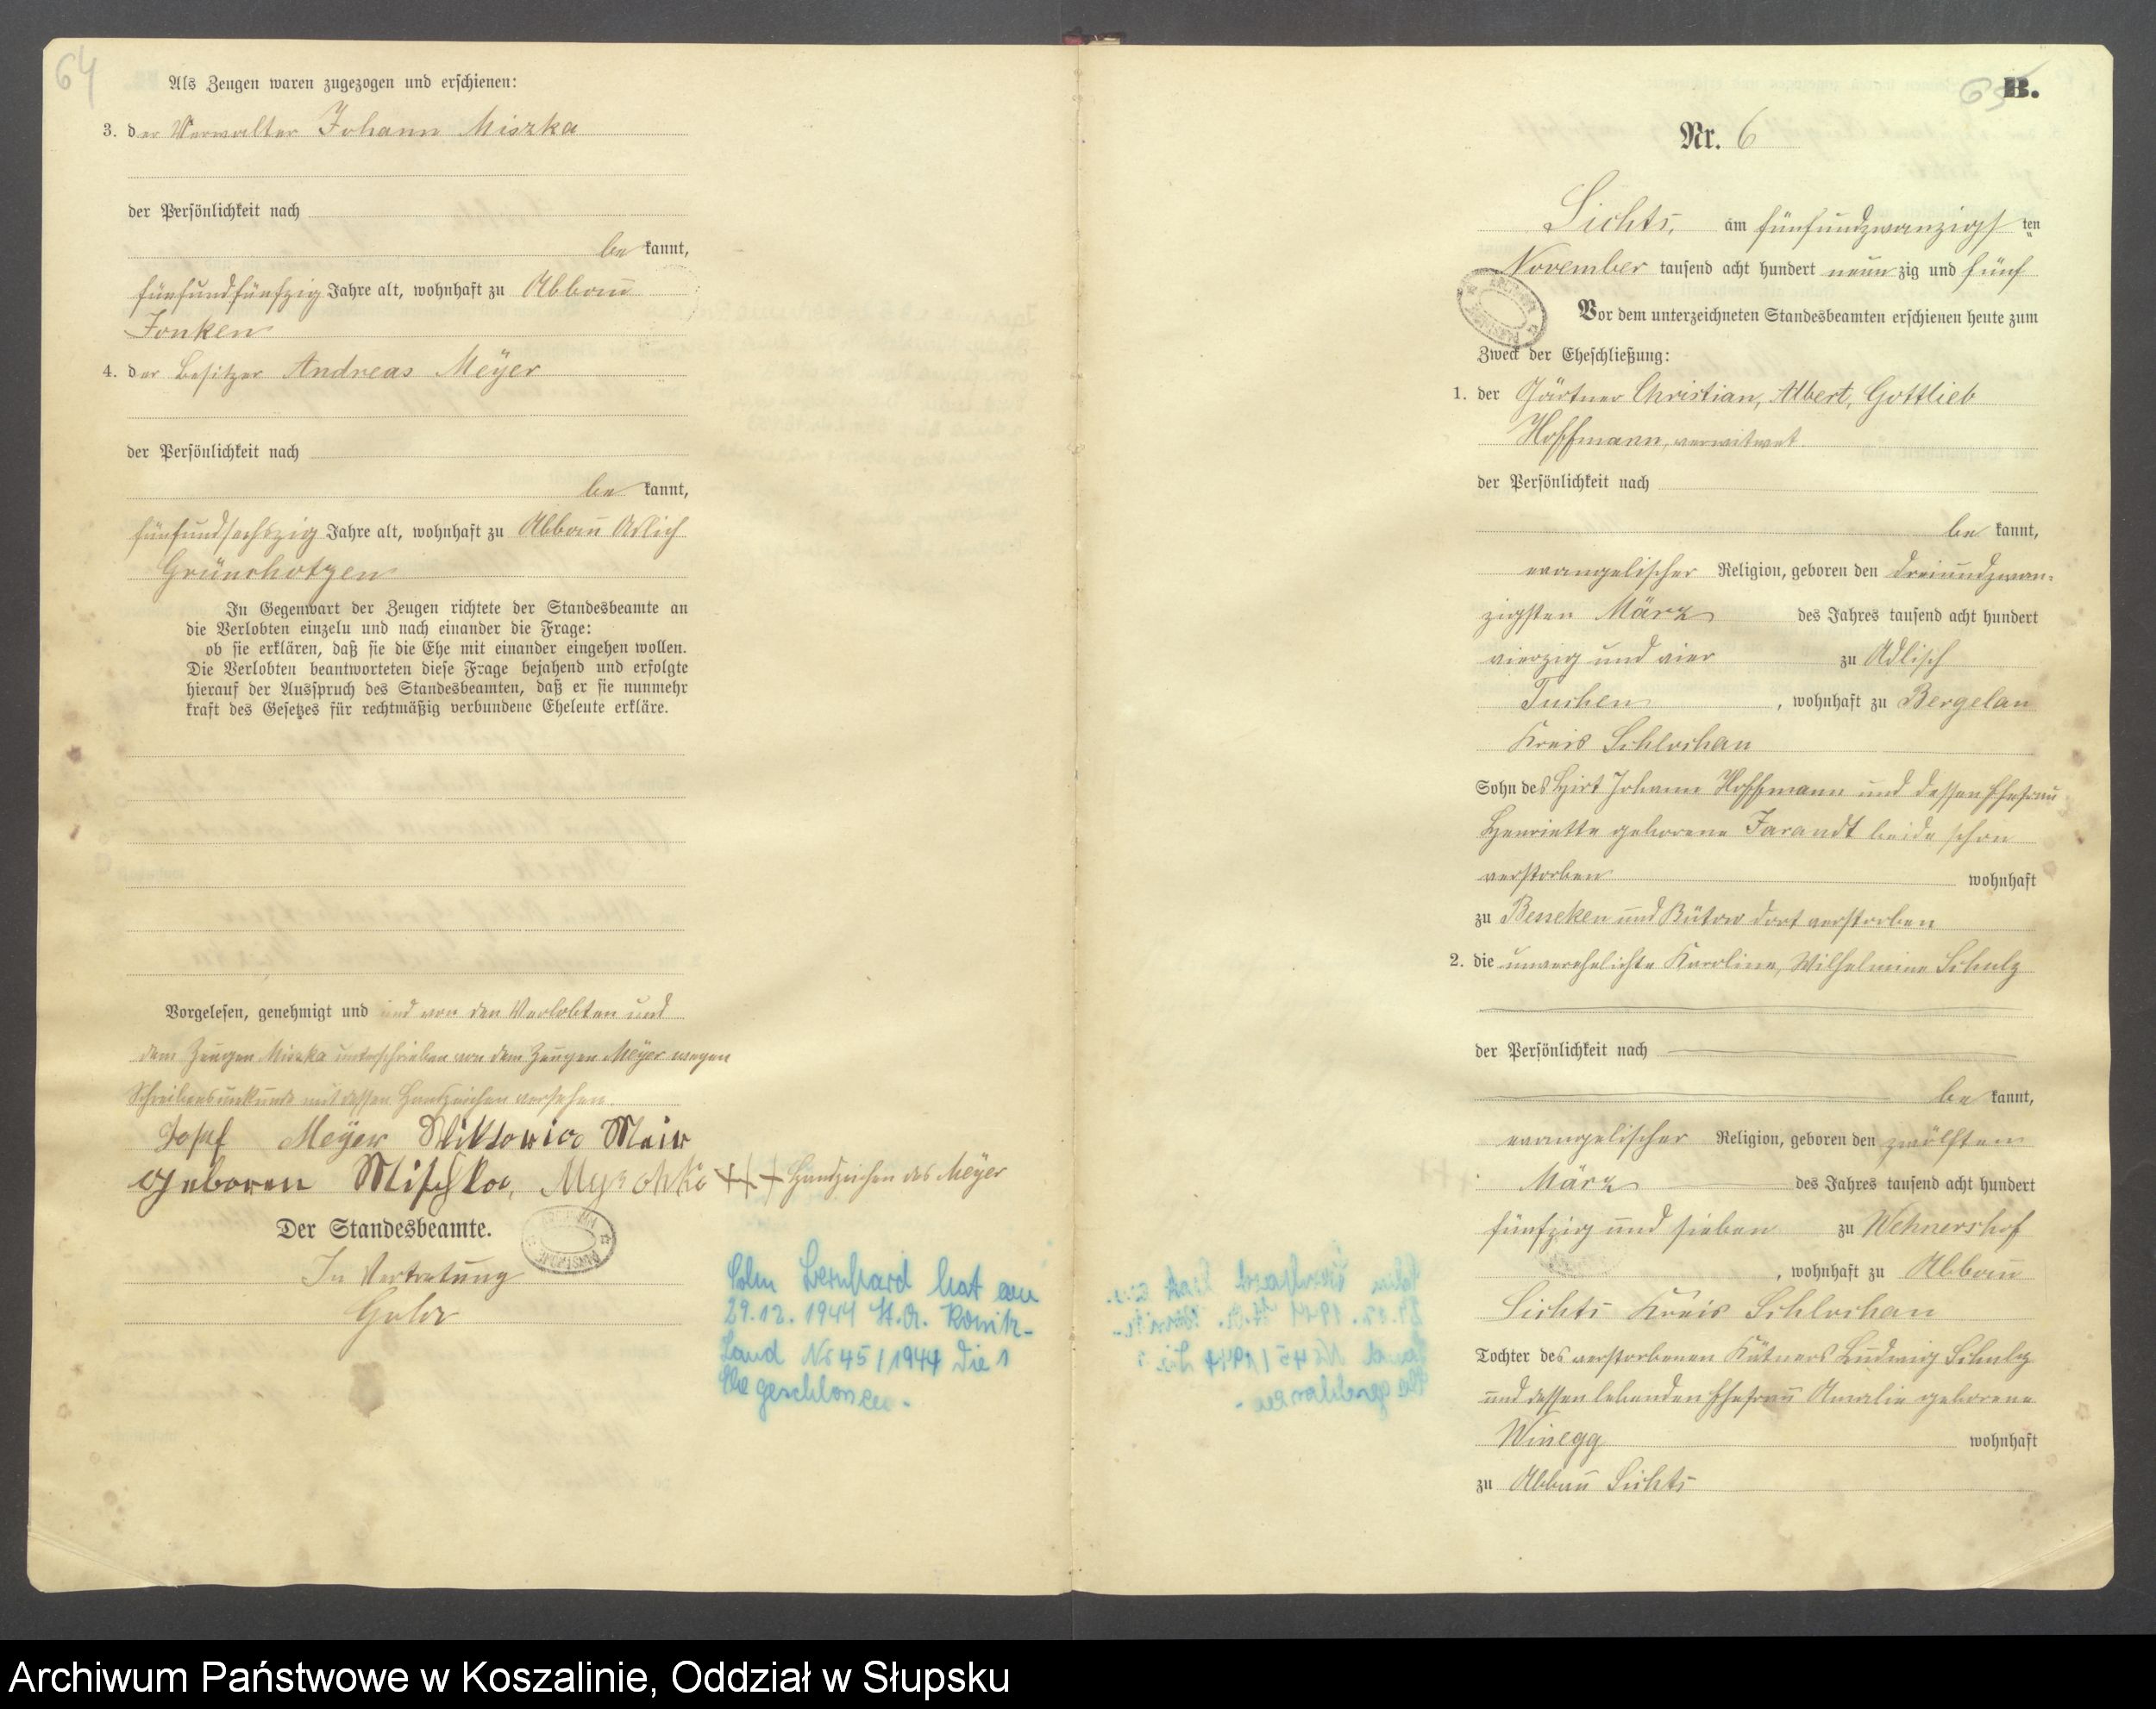 64
Als Zeugen waren zugezogen und erschienen:
3. der Verwalter Johann Miszka
der Persönlichkeit nach
be kannt,
fünfundfünfzig Jahre alt, wohnhaft zu Abbau
Fonken
4. der Besitzer Andreas Meÿer
der Persönlichkeit nach
be kannt,
fünfundsechszig Jahre alt, wohnhaft zu Abbau Adlich
Grünchotzen
In Gegenwart der Zeugen richtete der Standesbeamte an
die Verlobten einzeln und nach einander die Frage:
ob sie erklären, daß sie die Ehe mit einander eingehen wollen.
Die Verlobten beantworteten diese Frage bejahend und erfolgte
hierauf der Ausspruch des Standesbeamten, daß er sie nunmehr
kraft des Gesetzes für rechtmäßig verbundene Eheleute erkläre.
Vorgelesen, genehmigt und und von den Verlobten und
dem Zeugen Miszka unterschrieben von dem Zeugen Meÿer wegen
Schreibensunkunde mit dessen Handzeichen versehen.
Josef Meÿer Meir
geboren Mischka, +++ Handzeichen des Meÿer
Der Standesbeamte.
In Vertretung
Sohn Bernhard hat am
29.12.1944 St.A. Konitz-
Land Nr 45/1944 die 1
Ehe geschlossen.-
65
B.
Nr. 6
Lichts, am fünfundzwanzigs ten
November tausend acht hundert neun zig und fünf
Vor dem unterzeichneten Standesbeamten erschienen heute zum
Zweck der Eheschließung:
1. der Gärtner Christian, Albert, Gottlieb
Hoffmann, verwitwet.
der Persönlichkeit nach
be kannt,
evangelischer Religion, geboren den dreiundzwan-
zigsten März des Jahres tausend acht hundert
vierzig und vier zu Adlisch
Tuchen, wohnhaft zu Bergelau
Kreis Schlochau
Sohn des Hirt Johann Hoffmann und dessen Ehefrau
Henriette geborene Jarandt beide schon
verstorben wohnhaft
zu Berneken und Bütow dort verstorben
2. die unverehelichte Karoline, Wilhelmine Schulz
der Persönlichkeit nach
be kannt,
evangelischer Religion, geboren den zwölften
März des Jahres tausend acht hundert
fünfzig und sieben zu Wehnershof
, wohnhaft zu Abbau
Lichts Kreis Schlochau
Tochter des verstorbenen Kätners Ludwig Schulz
und dessen lebenden Ehefrau Amalie geborene
Winegg wohnhaft
zu Abbau Lichts
Archiwum Państwowe w Koszalinie, Oddział w Słupsku